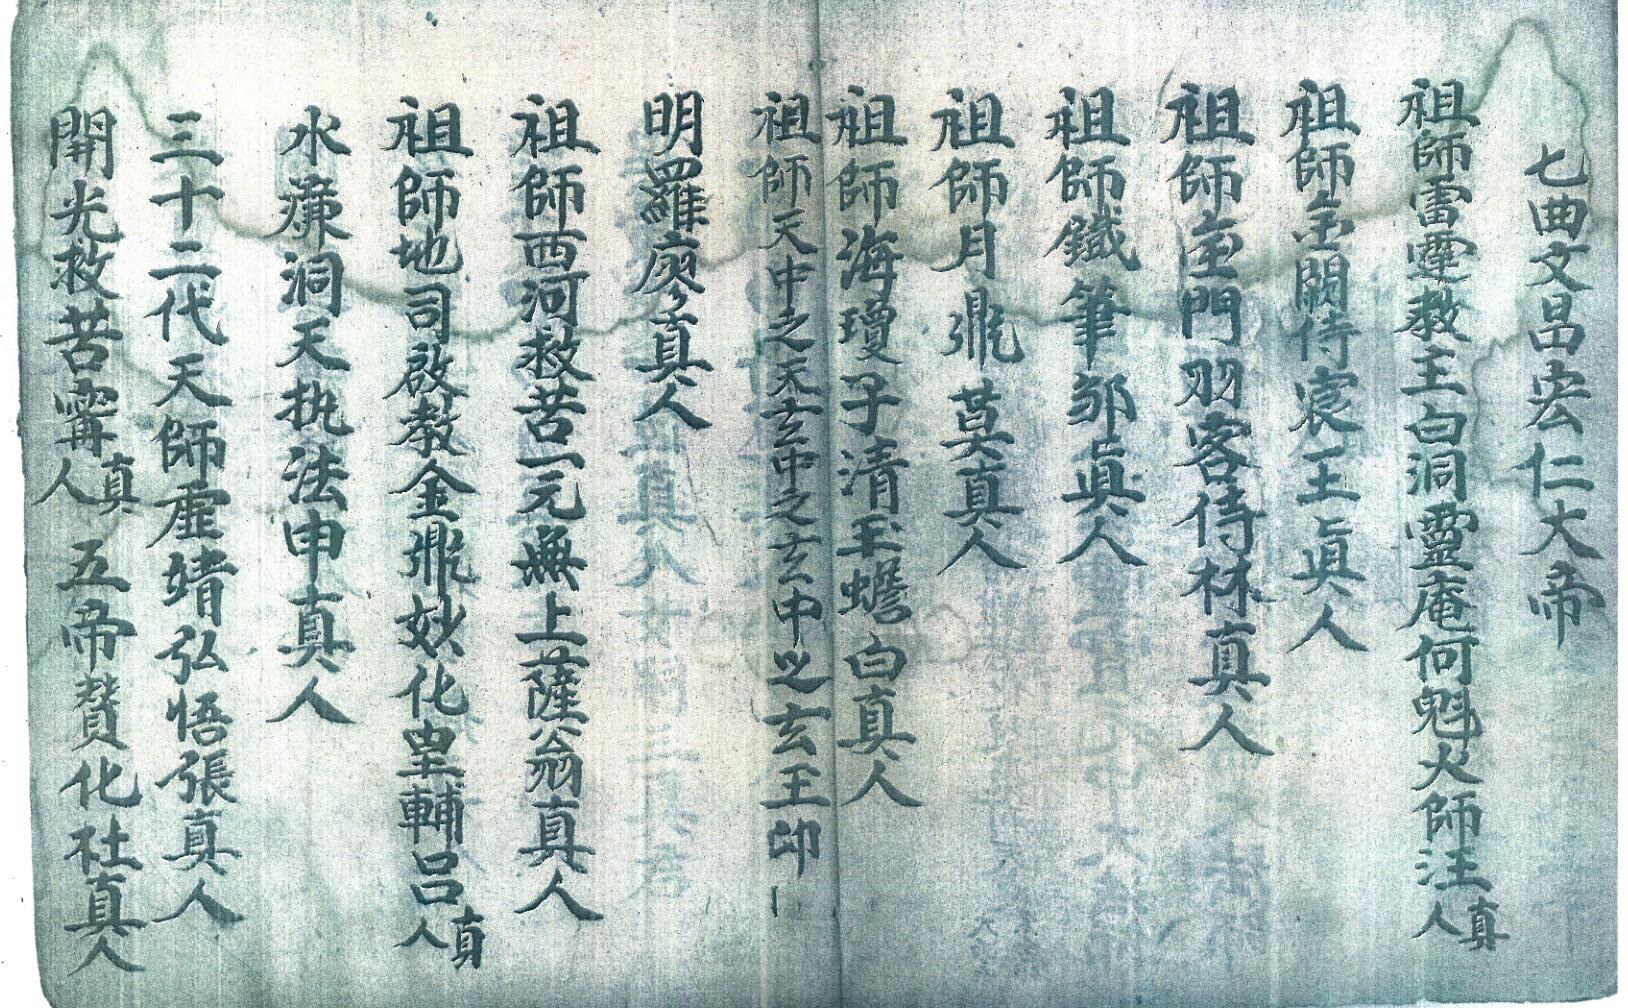 七曲文昌宏仁大帝
祖師雷霆教主白洞靈庵何魁火師汪真人
祖師金闕侍宸王眞人
祖師金門羽客侍宸林真人
祖師鐵筆邹眞人
祖師月鼎莫真人
祖師海瓊子清玉蟾白真人
祖師天中之天玄中之玄中之玄王
明羅廖真人
祖師西河救苦一元無上薩翁真人
祖師地司啟教金鼎妙化皇輔呂真人
水濂洞天执法申真人
三十二代天師虛靖弘悟張真人
開光救苦甯真人 五帝賛化杜真人